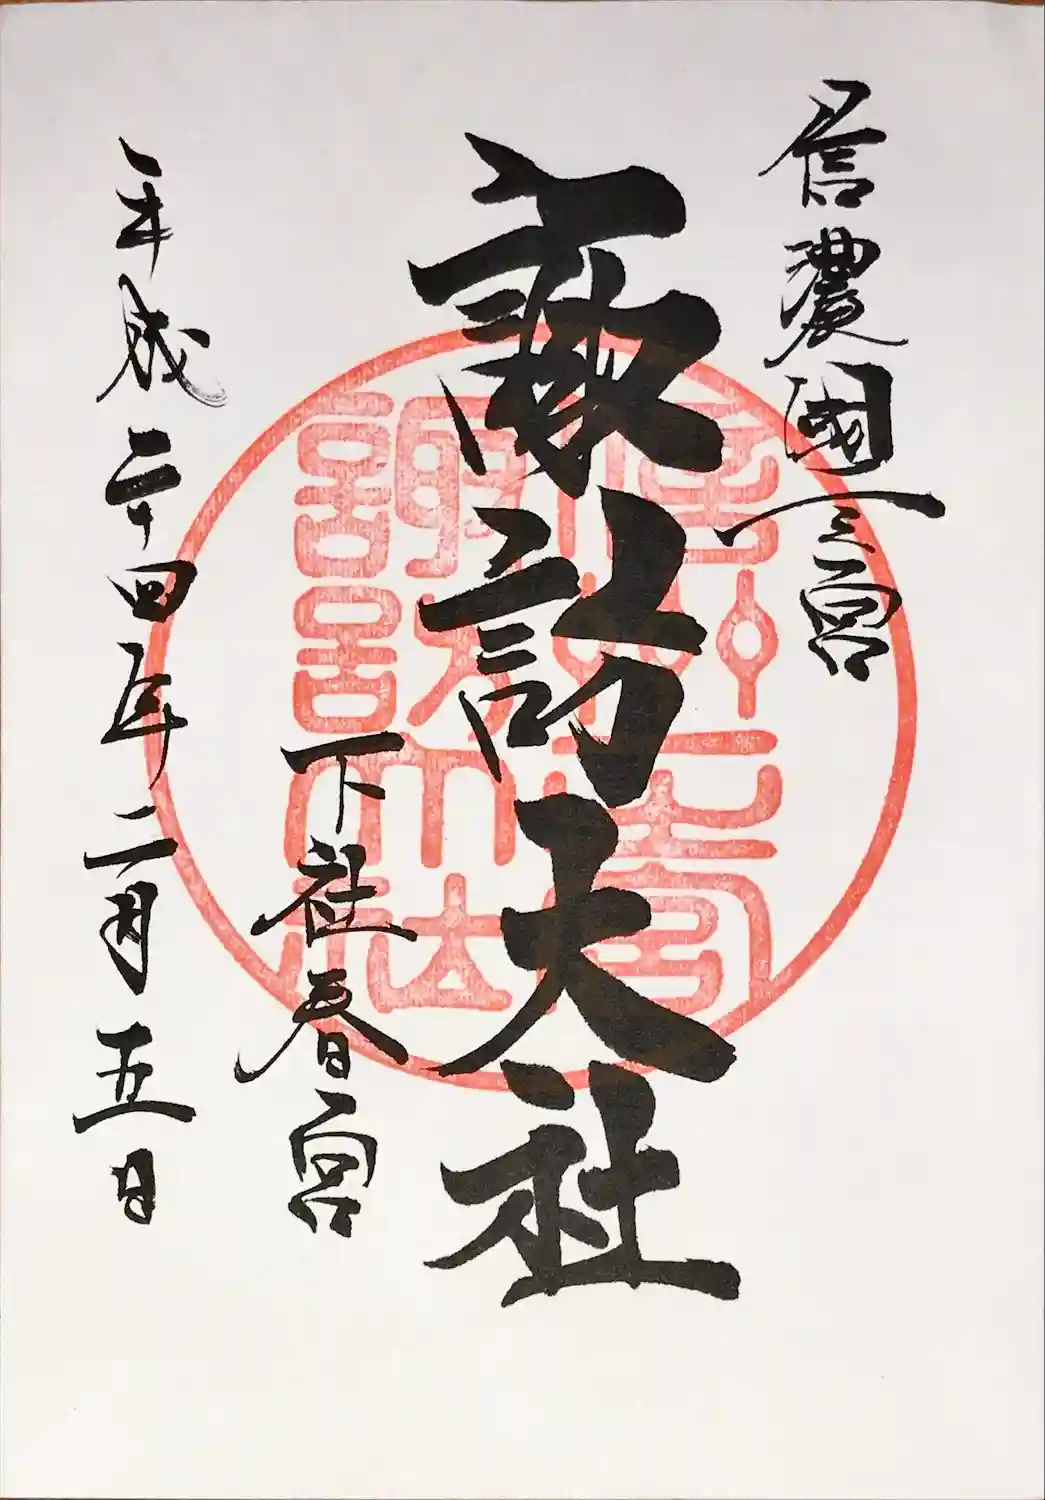 信濃國一之宮
諏訪大社
下社春宮
平成二十四年二月五日
信州一之宮
諏訪大社